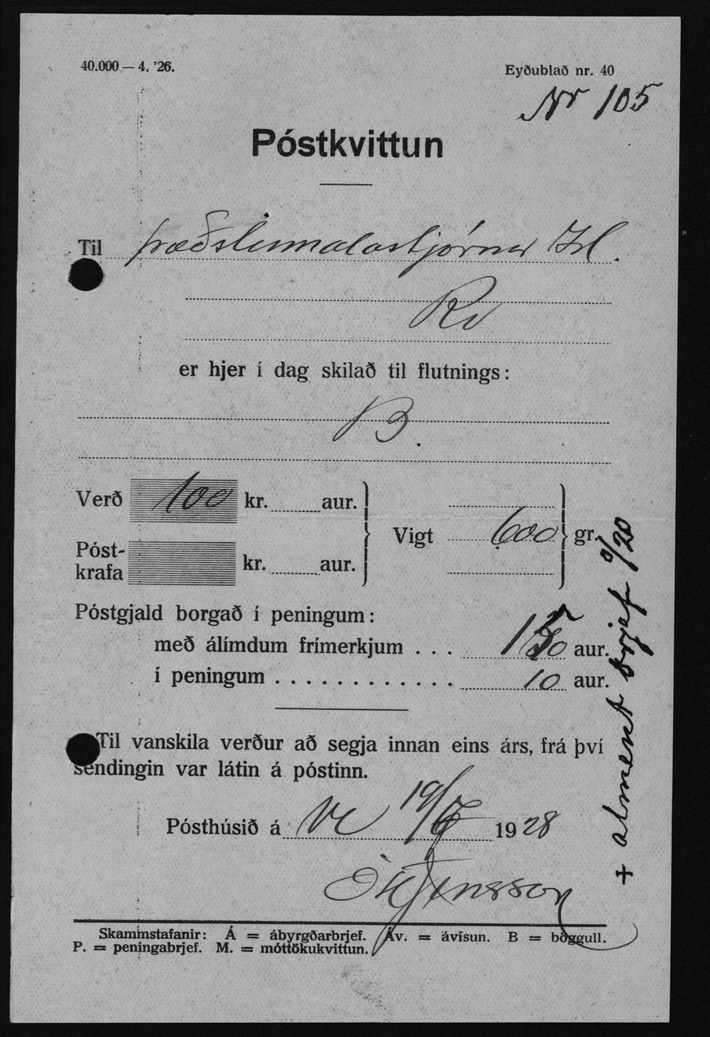 40.000 — 4. '26.
Eyðublað nr. 40
Nr 105
Póstkvittun
Til fræðslumálastjórnar Ísl.
Rv
er hjer í dag skilað til flutnings:
B.
Verð 100 kr. aur.
Póst-
krafa kr. aur.
Vigt 600 gr.
Póstgjald borgað í peningum:
með álímdum frímerkjum . . . 150 aur.
í peningum . . . . . . . . . . . . 10 aur.
+ alment brjef 0/20
Til vanskila verður að segja innan eins árs, frá því
sendingin var látin á póstinn.
Pósthúsið á Ve 19/6 1928
Jensson
Skammstafanir: Á = ábyrgðarbrjef. Áv. = ávísun. B = böggull.
P. = peningabrjef. M. = móttökukvittun.